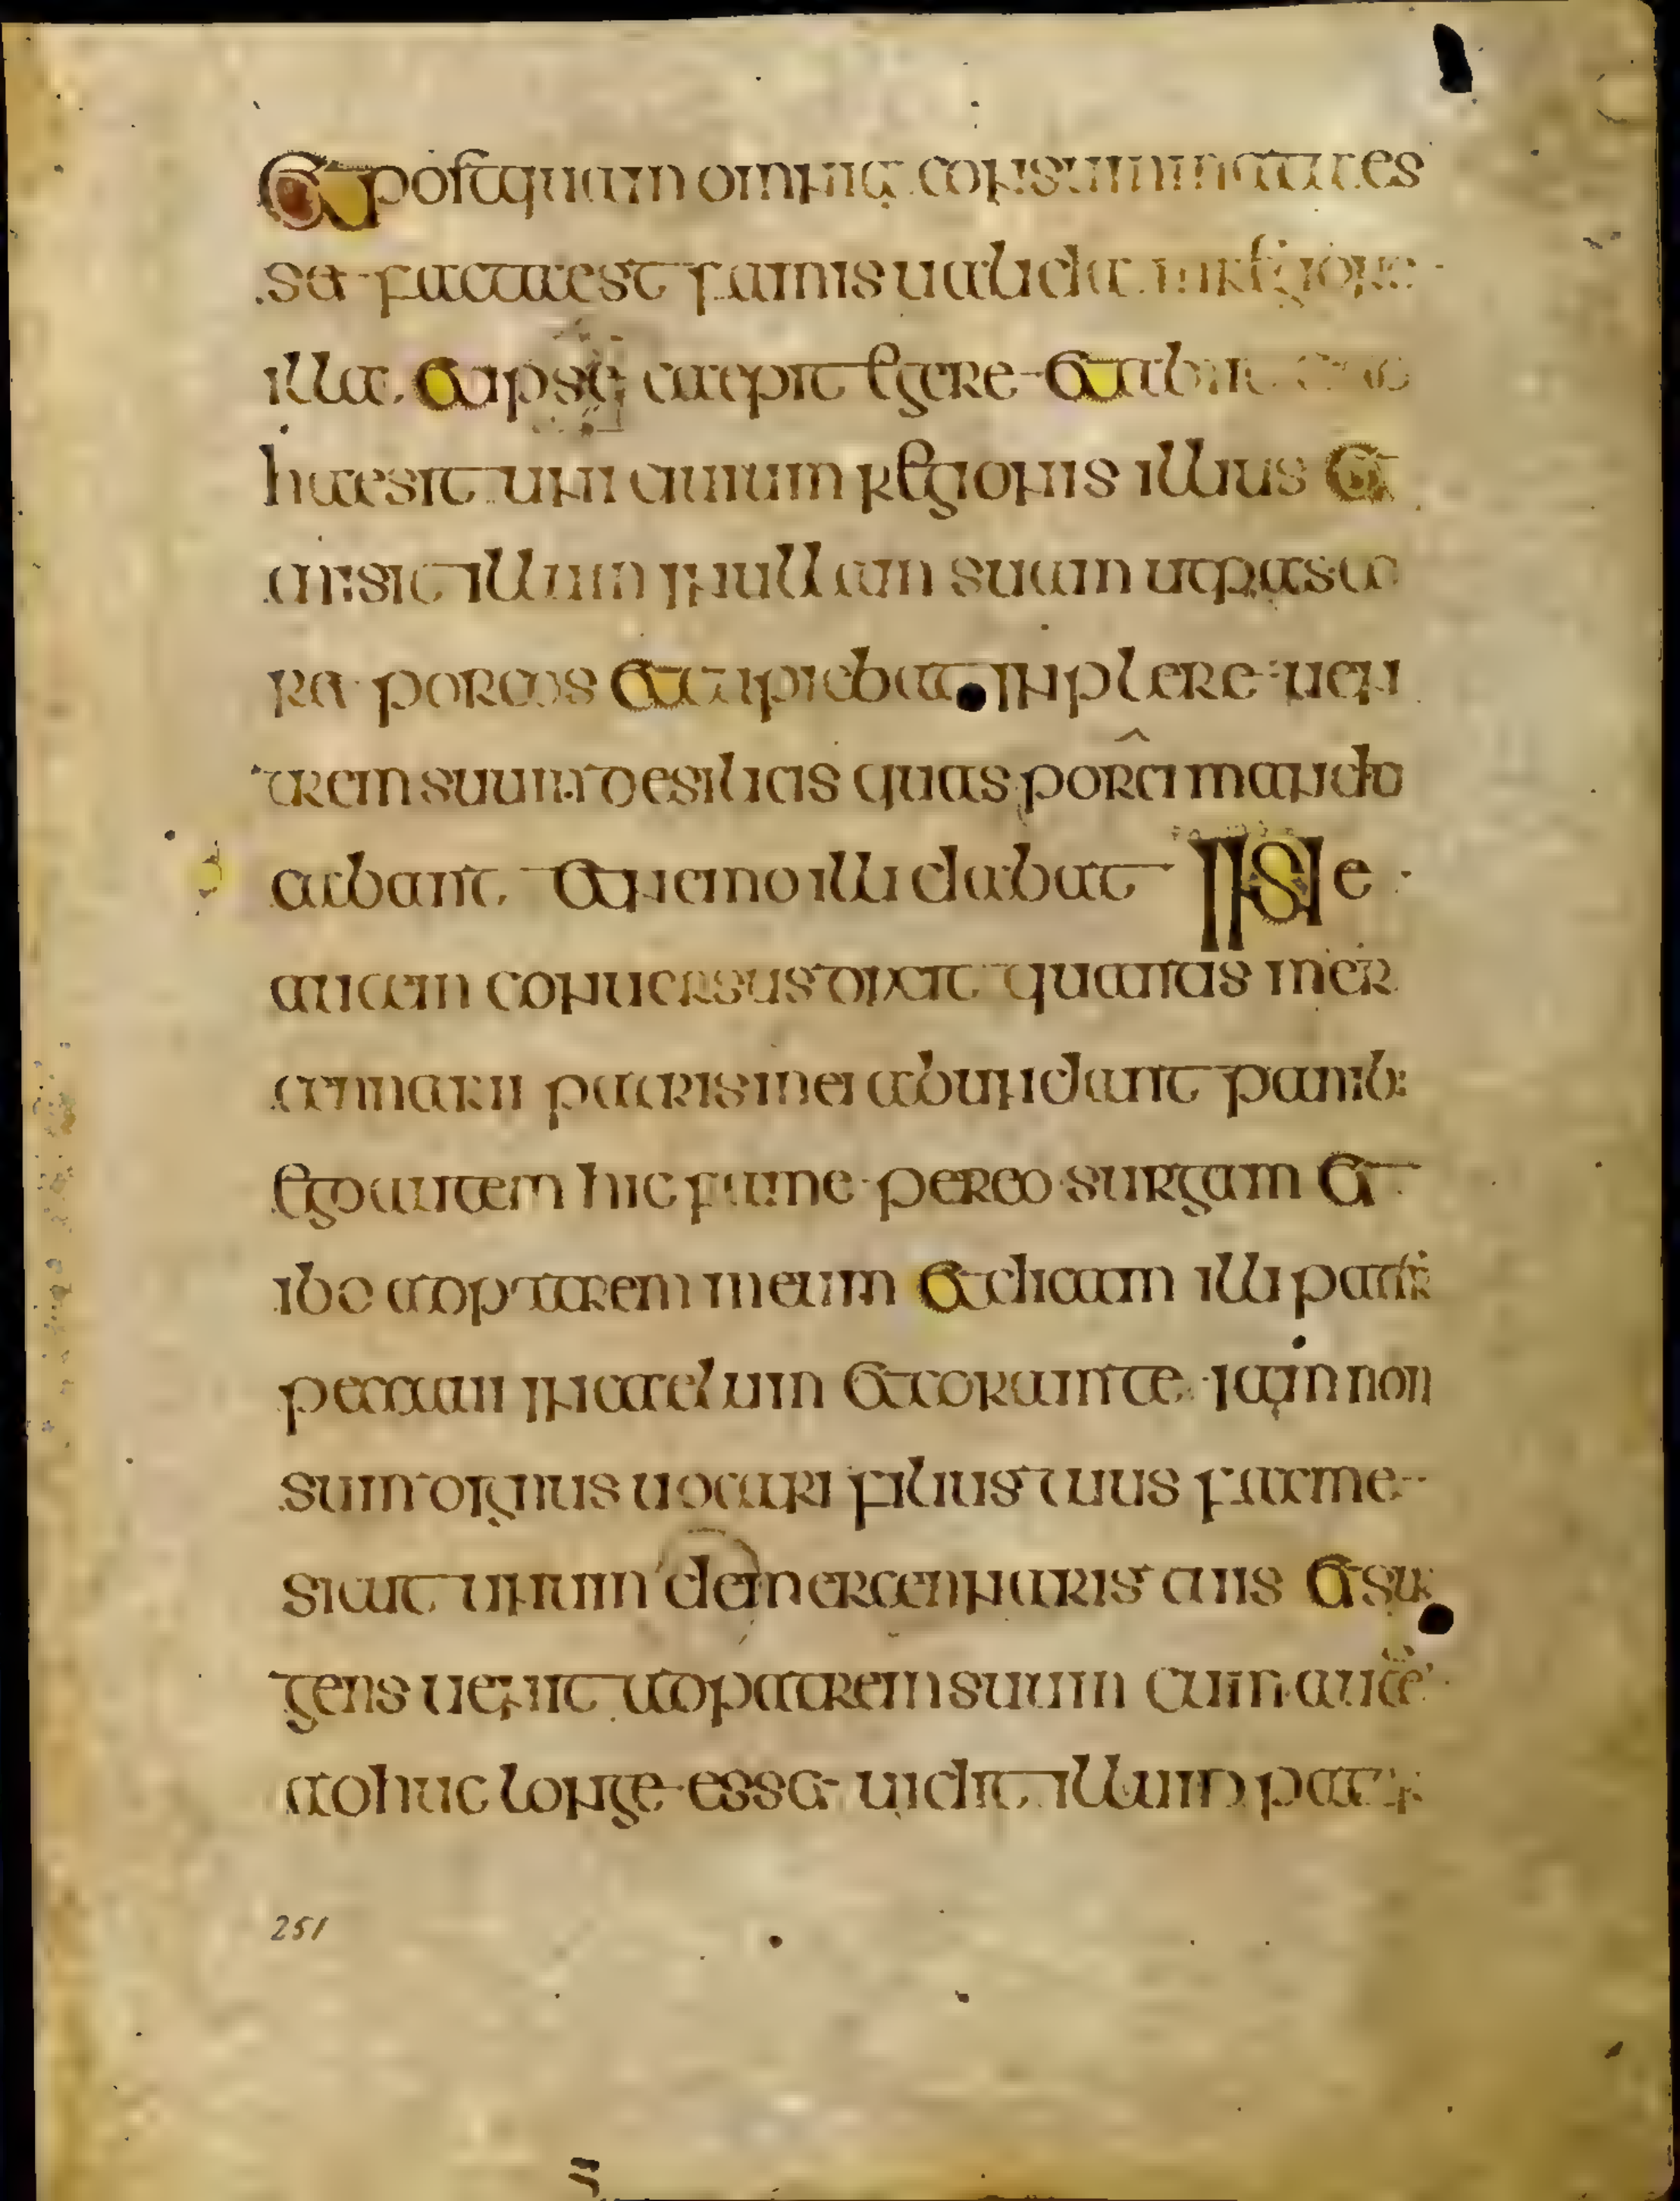 Et postquam omnia consummattres
set facta est famis ualida in regione
illa. et ipse caepit egere et abiit et ad
haesit uni ciuium regionis illius et
missit illum in uillam suam ut pasce
ret porcos et cupiebat inplere uen
trem suum de siliciis quas porci mandu
cabant. et nemo illi dabat in se
autem conuersus dixit quanti mer
cennarii patris mei abundant panib:
ego autem hic fame pereo surgam et
ibo ad patrem meum et dicam illi pater
peccaui in caelum et coram te iam non
sum dignus uocari filius tuus fac me
sicut unum de mercennaris tuis et sur
gens uenit ad patrem suum cum aute
adhuc longe esset uidit illum pater
251